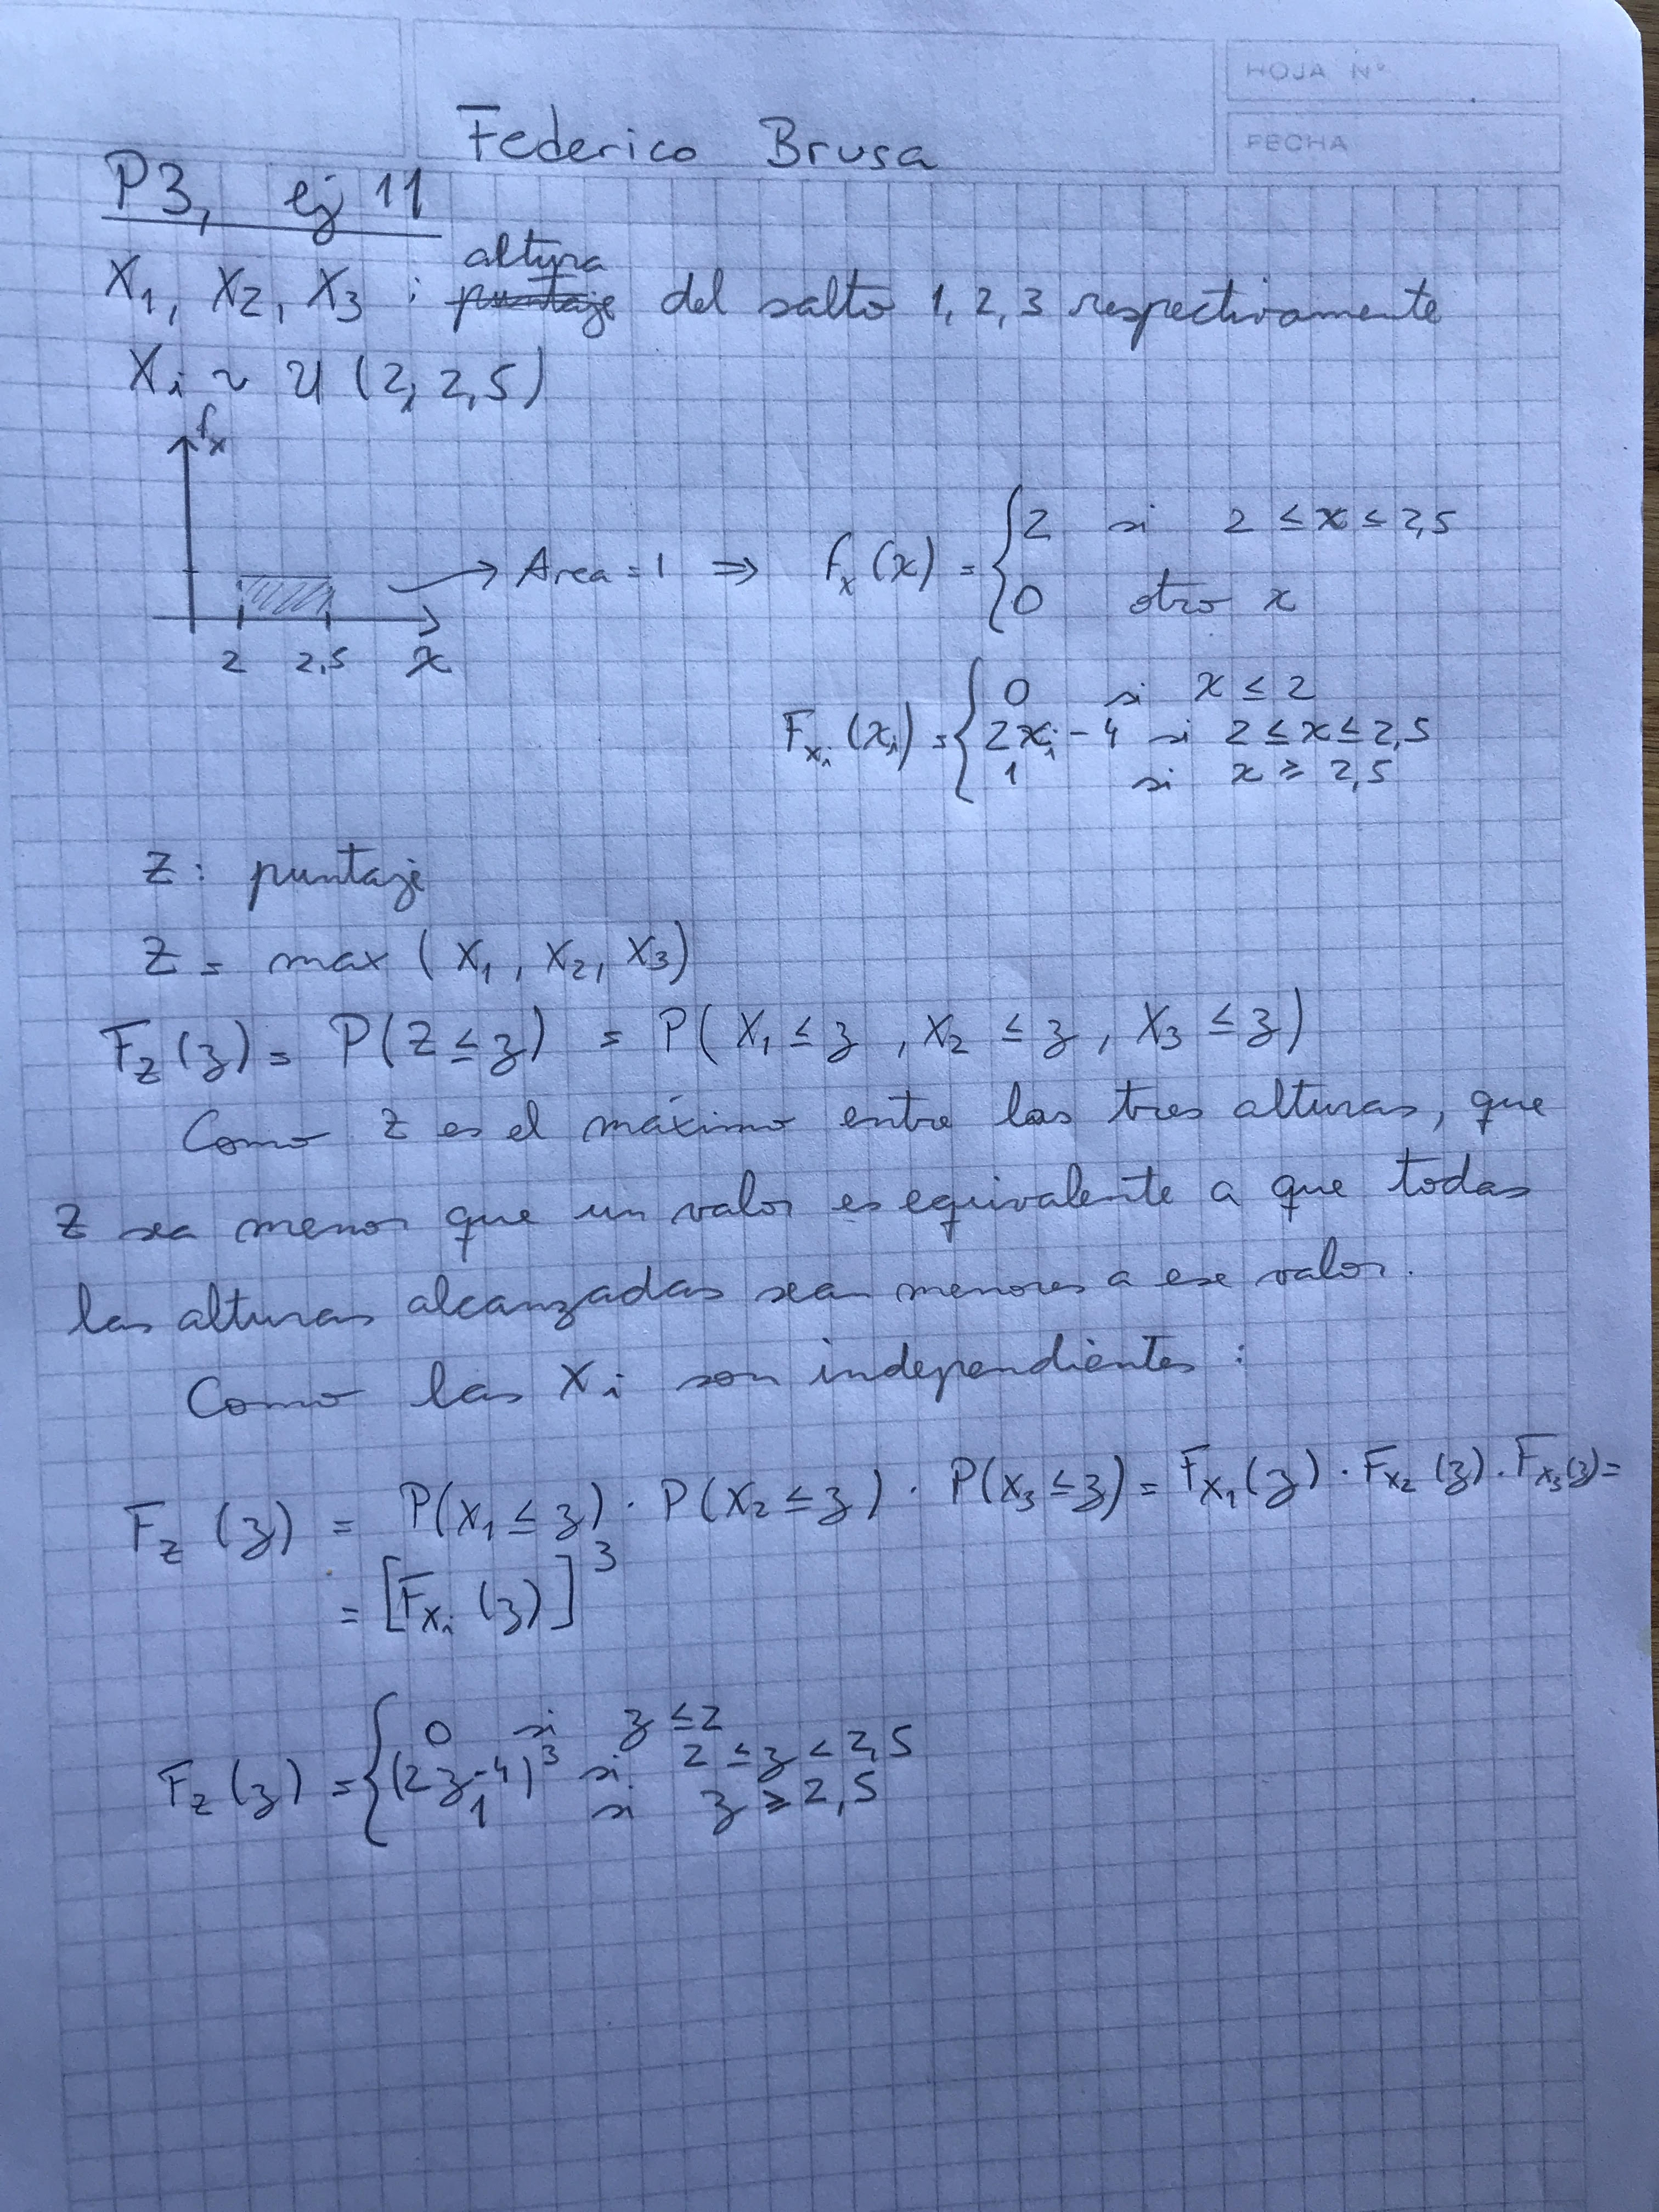 HOJA Nº
FECHA
Federico Brusa
P3, ej 11
X₁, X₂, X₃ : altura ~~puntaje~~ del salto 1, 2, 3 respectivamente
Xᵢ ~ U (2, 2,5)
fₓ
→ Area = 1 ⇒ fₓ(x) = { 2 si 2 ≤ x ≤ 2,5
0 otro x
2 2,5 x
F_xᵢ (xᵢ) = { 0 si x ≤ 2
2xᵢ - 4 si 2 ≤ x ≤ 2,5
1 si x ≥ 2,5
Z: puntaje
Z = max (X₁, X₂, X₃)
F_Z(z) = P(Z ≤ z) = P(X₁ ≤ z, X₂ ≤ z, X₃ ≤ z)
Como Z es el máximo entre las tres alturas, que
Z sea menor que un valor es equivalente a que todas
las alturas alcanzadas sean menores a ese valor.
Como las Xᵢ son independientes:
F_Z (z) = P(X₁ ≤ z) · P(X₂ ≤ z) · P(X₃ ≤ z) = F_X₁(z) · F_X₂(z) · F_X₃(z) =
= [F_Xᵢ (z)]³
F_Z (z) = { 0 si z ≤ 2
(2z-4)³ si 2 ≤ z < 2,5
1 si z ≥ 2,5